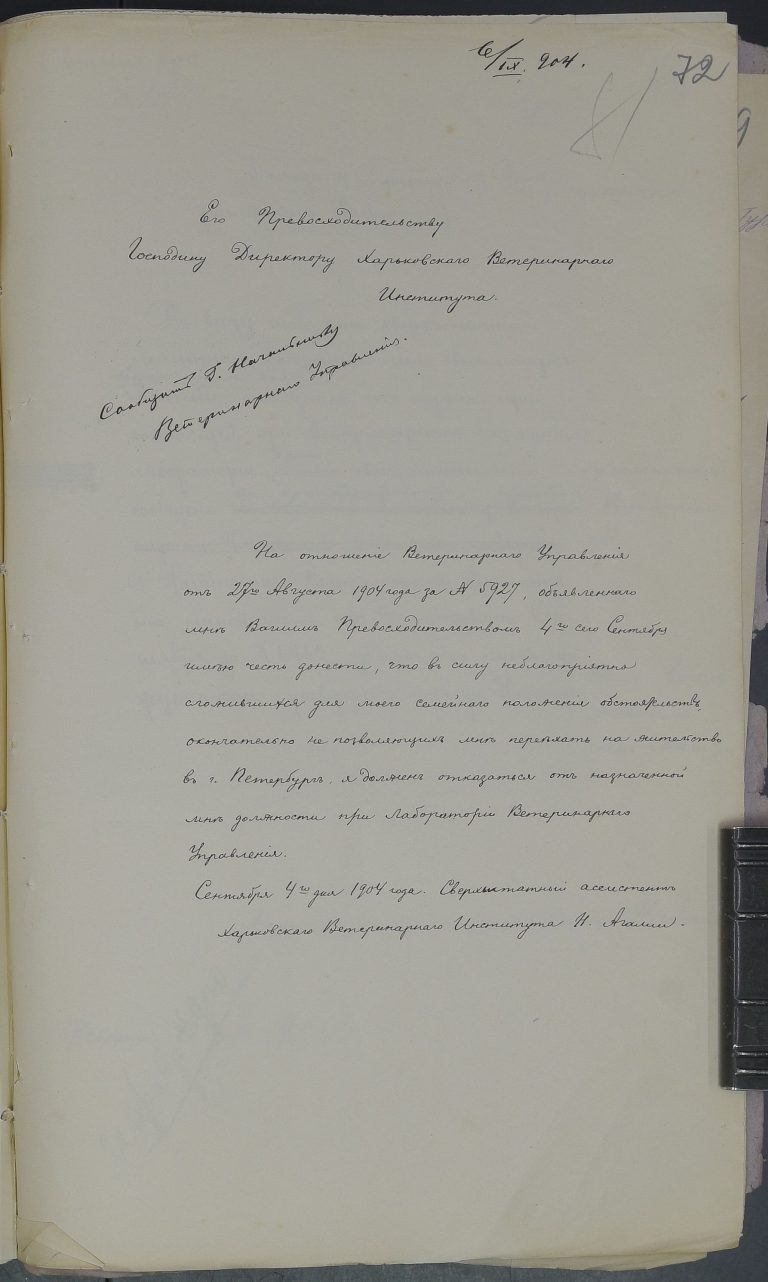 6/IX. 904.
72
Его Превосходительству
Господину Директору Харьковскаго Ветеринарнаго
Института.
Сообщить Г. Начальнику
Ветеринарнаго Управленія.
На отношеніе Ветеринарнаго Управленія
отъ 27го Августа 1904 года за № 5927, объявленнаго
мнѣ Вашимъ Превосходительствомъ 4го сего Сентября
имѣю честь донести, что въ силу неблагопріятно
сложившихся для моего семейнаго положенія обстоятельствъ,
окончательно не позволяющихъ мнѣ переѣхать на жительство
въ г. Петербургъ, я долженъ отказаться отъ назначенной
мнѣ должности при Лабораторіи Ветеринарнаго
Управленія.
Сентября 4го дня 1904 года. Сверхштатный ассистентъ
Харьковскаго Ветеринарнаго Института Н.